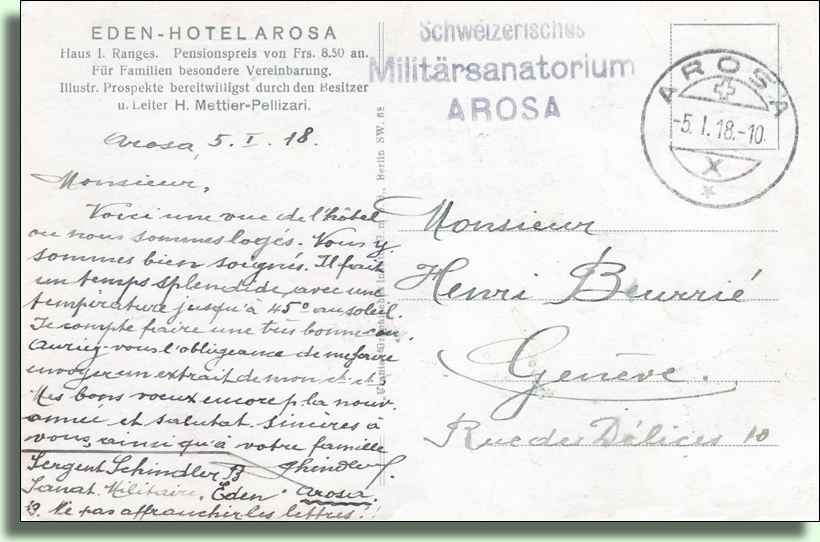 EDEN-HOTEL AROSA
Haus I. Ranges. Pensionspreis von Frs. 8.50 an.
Für Familien besondere Vereinbarung.
Illustr. Prospekte bereitwilligst durch den Besitzer
u. Leiter H. Mettier-Pellizari.
Schweizerisches
Militärsanatorium
AROSA
AROSA
-5.I.18.-10
X
Berlin SW. 68
Arosa, 5. I. 18.
Monsieur,
Voici une vue de l'hôtel
ou nous sommes logés. Vous y
sommes bien soignés. Il fait
un temps splendide, avec une
température jusqu'à 45° au soleil.
Je compte faire une très bonne cu
Auriez-vous l'obligeance de me faire
envoyer un extrait de mon
Mes bons voeux encore p. la nouv.
année et salutat. sincères à
vous, ainsi qu'à votre famille
Schindler.
Sergent Schindler B
Sanat. Militaire, "Eden" Arosa.
Ne pas affranchir les lettres!!
Monsieur
Henri Beurrié
Genève.
Rue des Délices 10